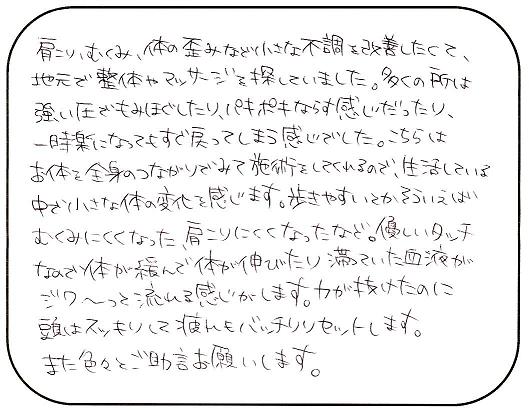 肩こり、むくみ、体の歪みなど小さな不調を改善したくて、
地元で整体やマッサージを探していました。多くの所は
強い圧でもみほぐしたり、バキボキならす感じだったり、
一時楽になってもすぐ戻ってしまう感じでした。こちらは
お体を全身のつながりでみて施術をしてくれるので、生活している
中で小さな体の変化を感じます。歩きやすいとかそういえば
むくみにくくなった、肩こりにくくなったなど。優しいタッチ
なので体が緩んで体が伸びたり滞っていた血液が
ジワ〜っと流れる感じがします。力が抜けたのに
頭はスッキリして疲れもバッチリリセットします。
また色々とご助言お願いします。